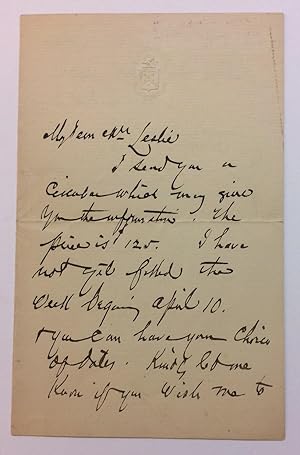 My dear Mr. Leslie
I send you a
Circular which may give
you the information. The
price is 125. I have
not yet filled the
Week beginning April 10.
& you can have your Choice
of dates. Kindly let me
Know if you Wish me to